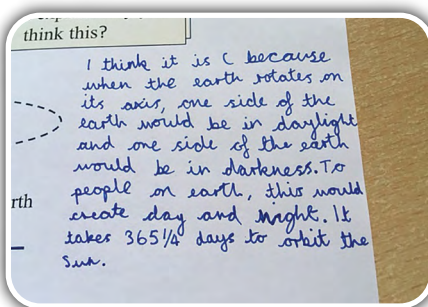 think this?
I think it is C because
when the earth rotates on
its axis, one side of the
earth would be in daylight
and one side of the earth
would be in darkness. To
people on earth, this would
create day and night. It
takes 365¼ days to orbit the
Sun.
rth